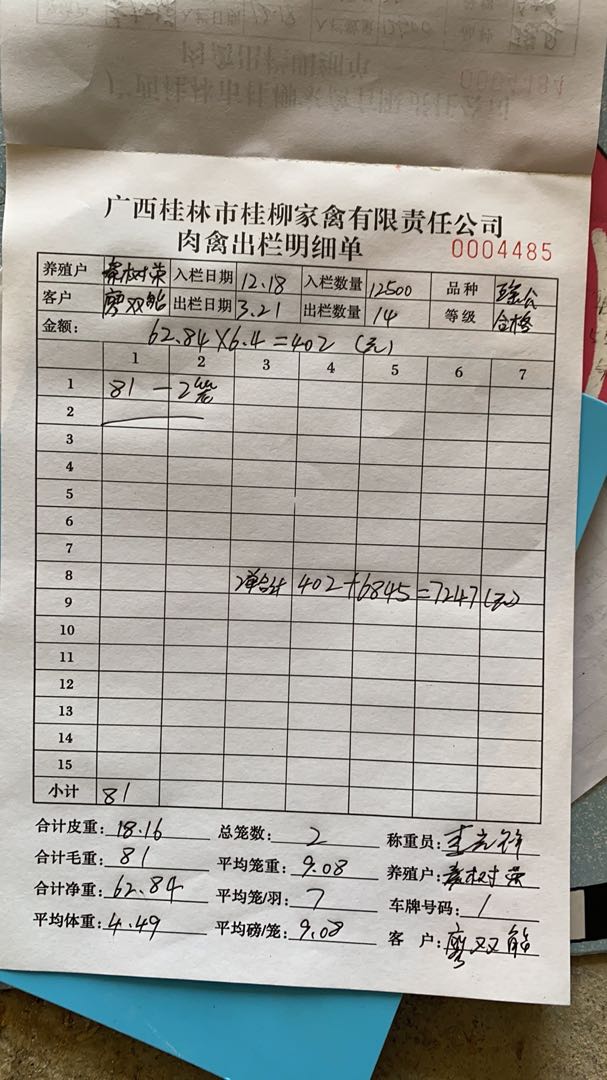 0004484
广西桂林市桂柳家禽有限责任公司
肉禽出栏明细单
0004485
养殖户 树荣 入栏日期 12.18 入栏数量 12500 品种
客户 双能 出栏日期 3.21 出栏数量 14 等级 合格
金额: 62.84×6.4=402 (元)
1 2 3 4 5 6 7
1 81 — 2笼
2
3
4
5
6
7
8 2单合计 402+6845=7247(元)
9
10
11
12
13
14
15
小计 81
合计皮重: 18.16 总笼数: 2 称重员:
合计毛重: 81 平均笼重: 9.08 养殖户: 树荣
合计净重: 62.84 平均笼/羽: 7 车牌号码: /
平均体重: 4.49 平均磅/笼: 9.08 客 户: 双能